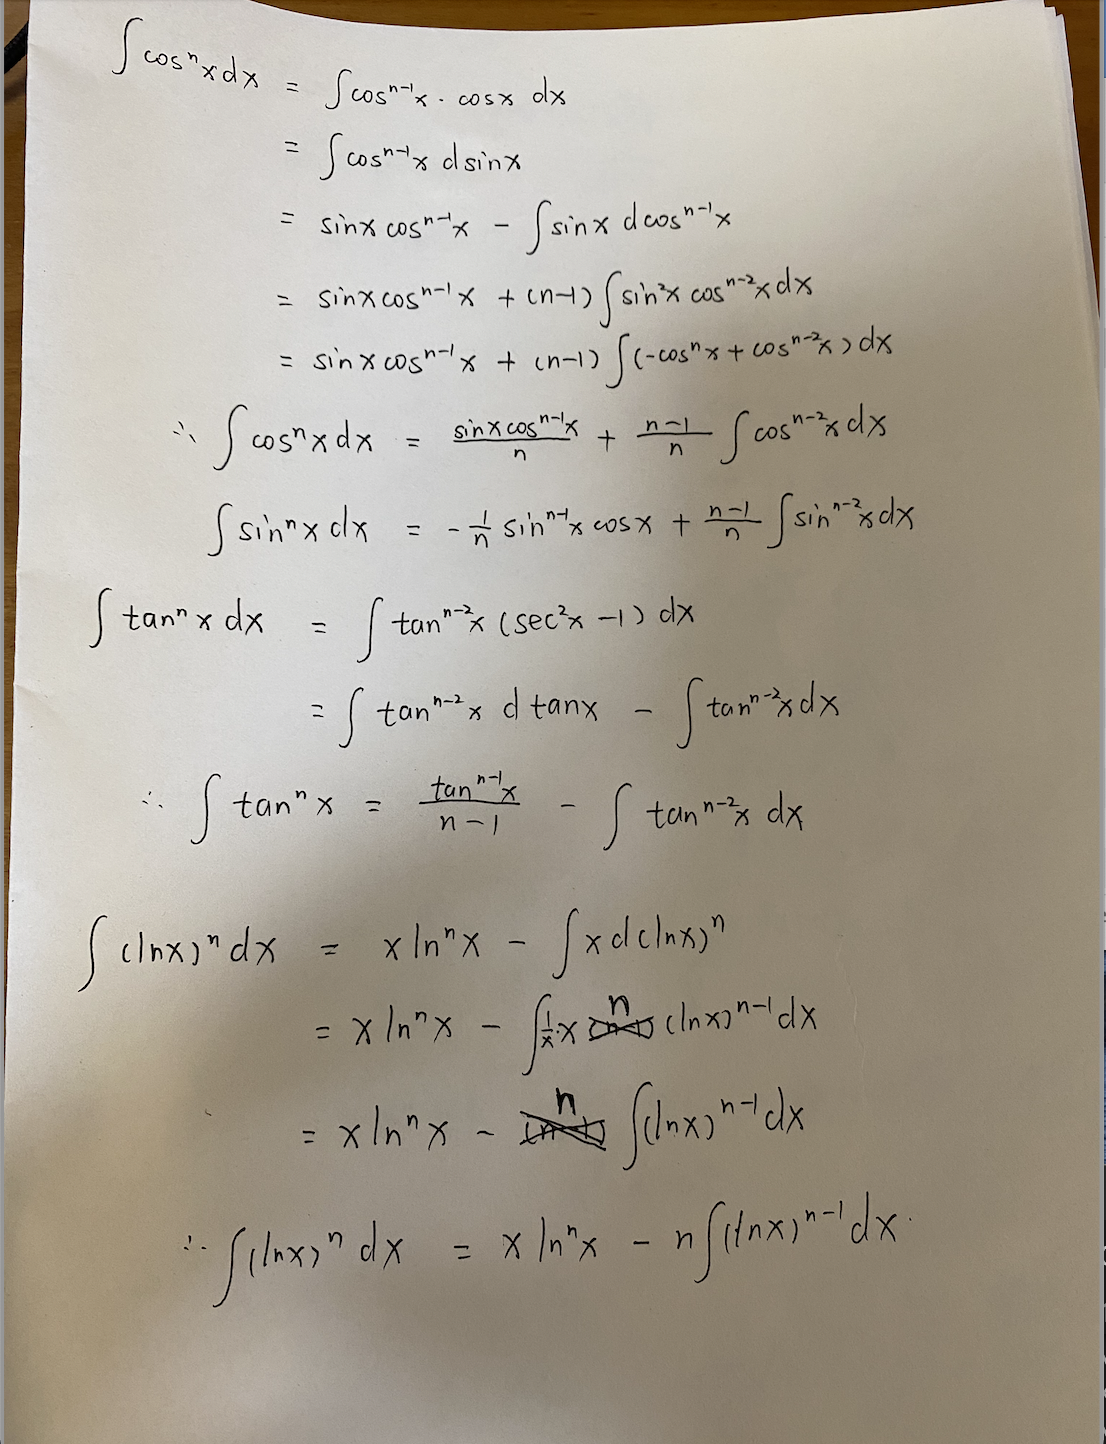 ∫cosⁿxdx = ∫cosⁿ⁻¹x · cosx dx
= ∫cosⁿ⁻¹x dsinx
= sinx cosⁿ⁻¹x − ∫sinx dcosⁿ⁻¹x
= sinxcosⁿ⁻¹x + (n−1)∫sin²x cosⁿ⁻²xdx
= sinxcosⁿ⁻¹x + (n−1)∫(−cosⁿx + cosⁿ⁻²x)dx
∴ ∫cosⁿxdx = \frac{sinxcosⁿ⁻¹x}{n} + \frac{n−1}{n} ∫cosⁿ⁻²xdx
∫sinⁿxdx = −\frac{1}{n} sinⁿ⁻¹x cosx + \frac{n−1}{n} ∫sinⁿ⁻²xdx
∫tanⁿx dx = ∫tanⁿ⁻²x (sec²x −1) dx
= ∫tanⁿ⁻²x d tanx − ∫tanⁿ⁻²xdx
∴ ∫tanⁿx = \frac{tanⁿ⁻¹x}{n−1} − ∫tanⁿ⁻²x dx
∫(lnx)ⁿdx = x lnⁿx − ∫xd(lnx)ⁿ
= x lnⁿx − ∫\frac{1}{x}·x n (lnx)ⁿ⁻¹dx
= x lnⁿx − n ∫(lnx)ⁿ⁻¹dx
∴ ∫(lnx)ⁿ dx = x lnⁿx − n∫(lnx)ⁿ⁻¹dx.